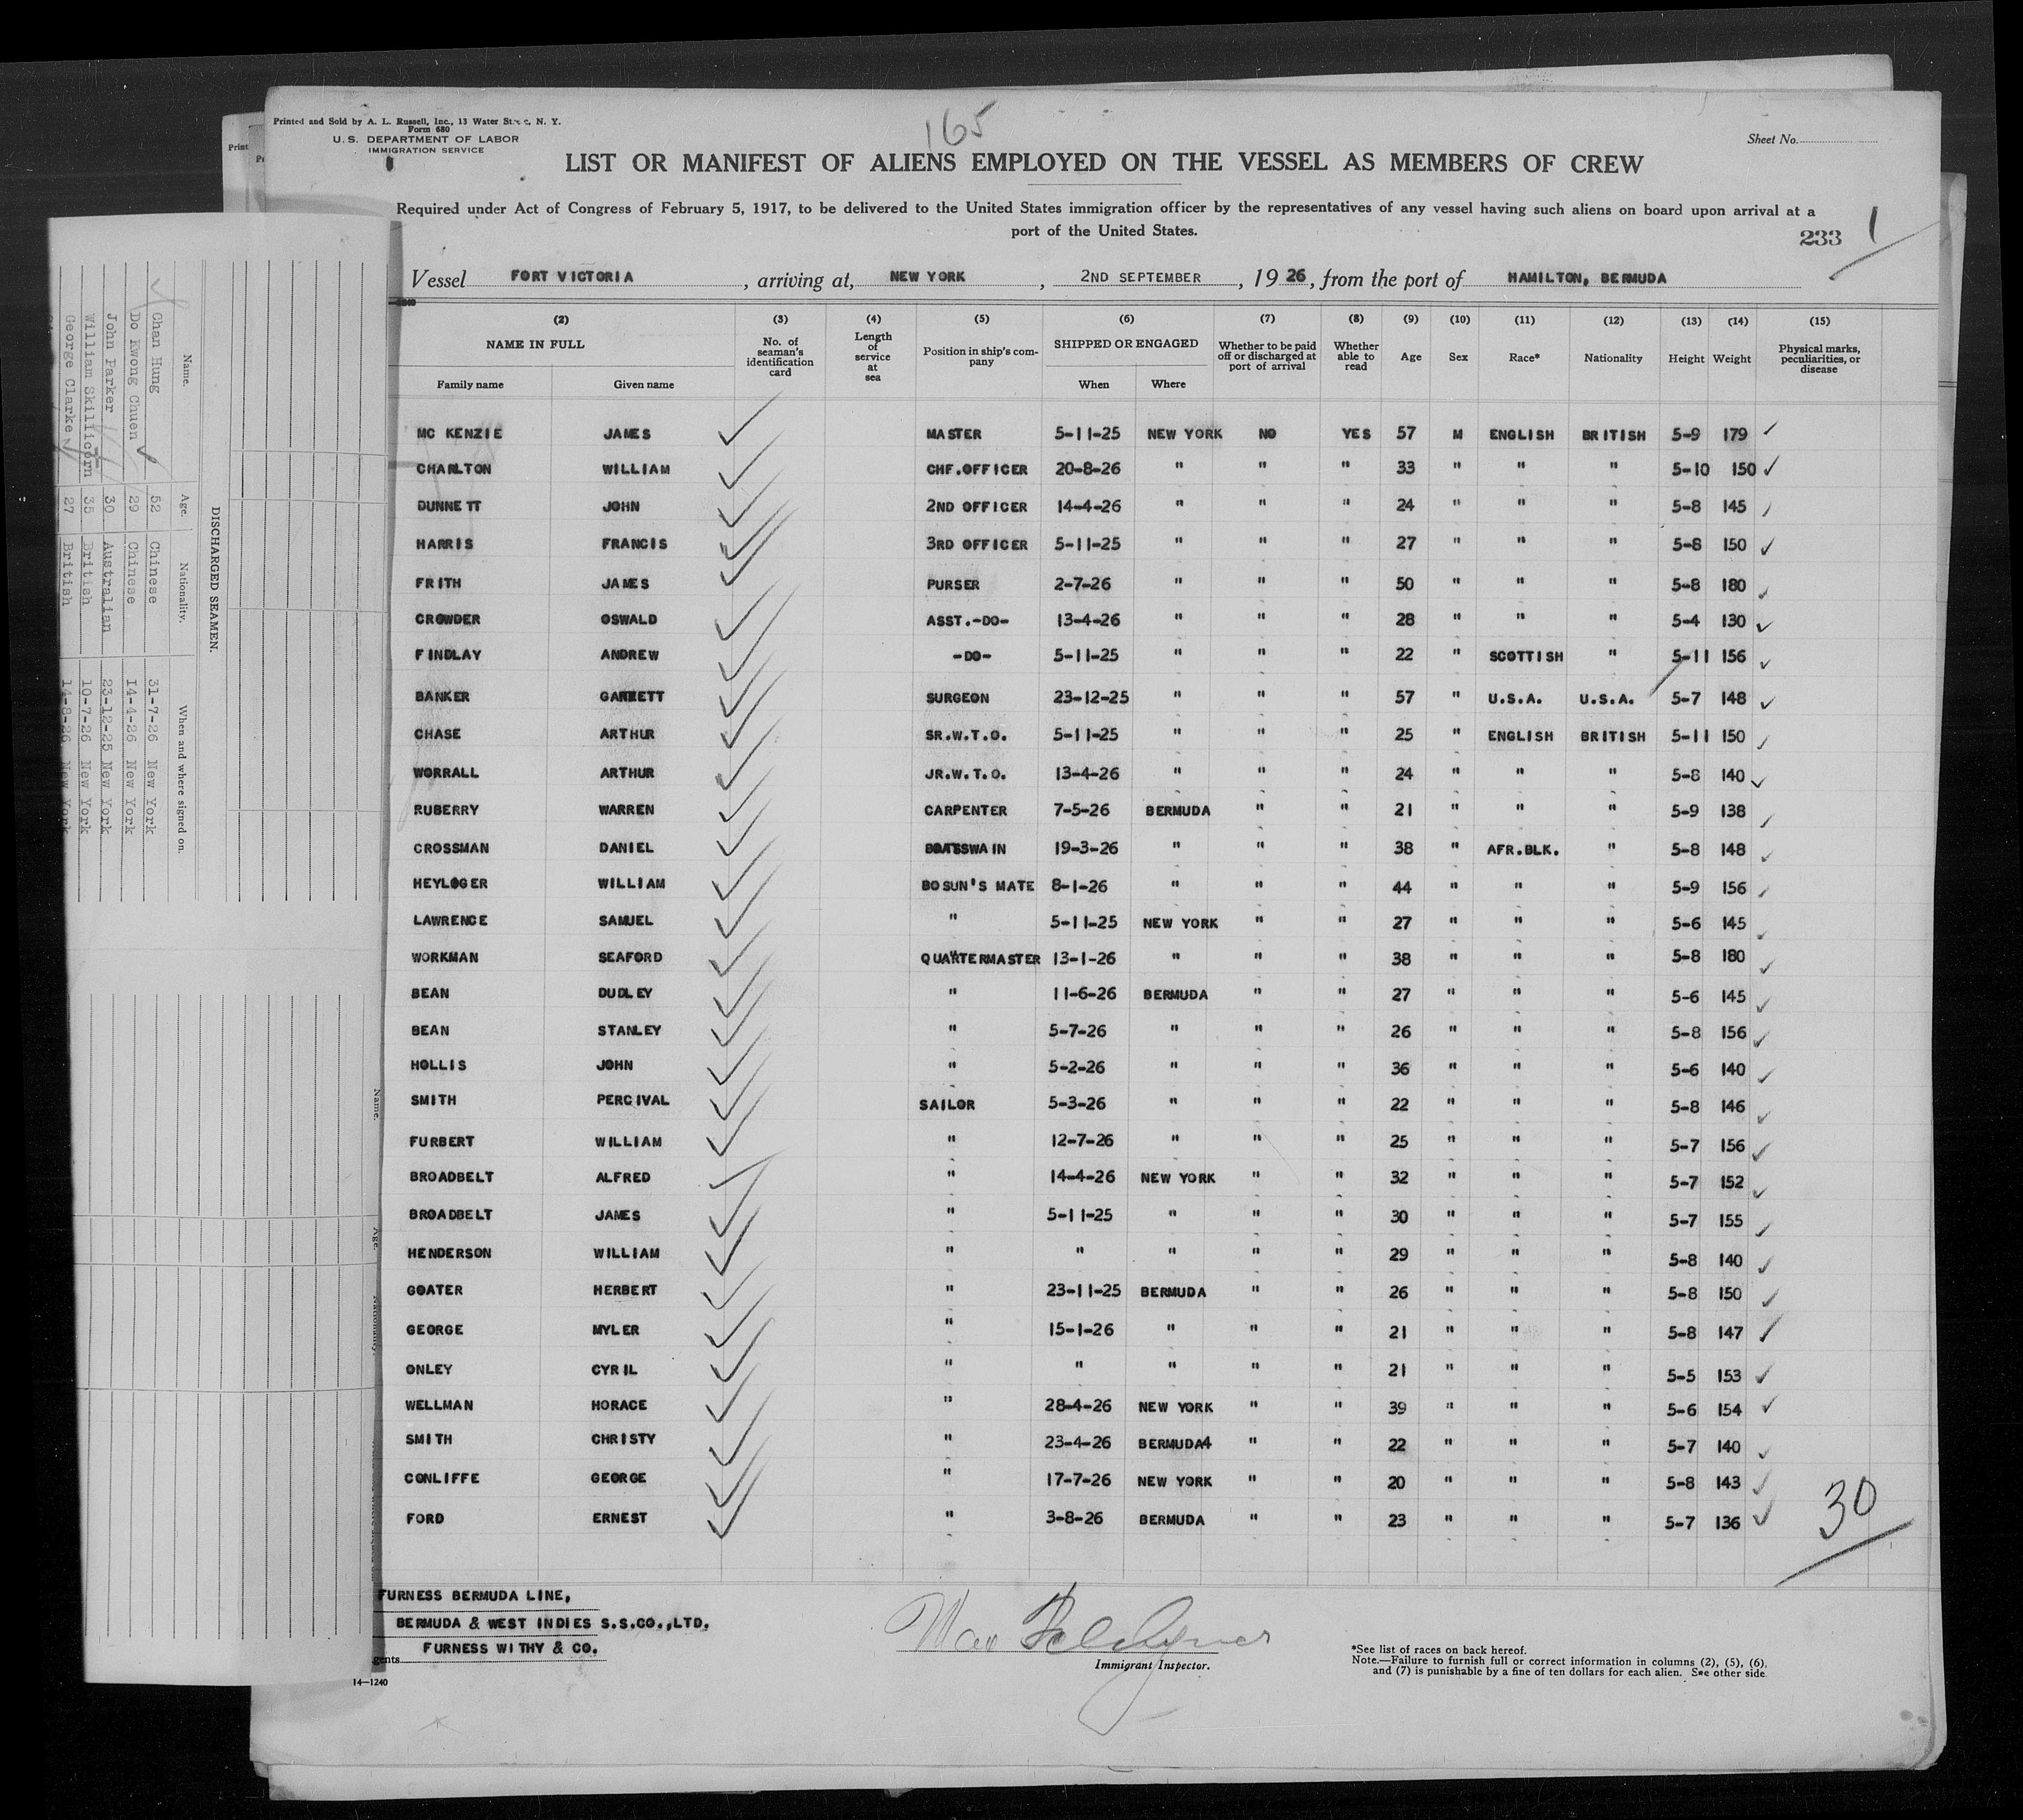 Printed and Sold by A. L. Russell, Inc., 13 Water St., N. Y.
Form 680
U. S. DEPARTMENT OF LABOR
IMMIGRATION SERVICE
165
Sheet No.
LIST OR MANIFEST OF ALIENS EMPLOYED ON THE VESSEL AS MEMBERS OF CREW
Required under Act of Congress of February 5, 1917, to be delivered to the United States immigration officer by the representatives of any vessel having such aliens on board upon arrival at a
port of the United States.
233 1
Vessel FORT VICTORIA, arriving at, NEW YORK, 2ND SEPTEMBER, 19 26, from the port of HAMILTON, BERMUDA
(2) (3) (4) (5) (6) (7) (8) (9) (10) (11) (12) (13) (14) (15)
NAME IN FULL No. of seaman's identification card Length of service at sea Position in ship's company SHIPPED OR ENGAGED Whether to be paid off or discharged at port of arrival Whether able to read Age Sex Race* Nationality Height Weight Physical marks, peculiarities, or disease
Family name Given name When Where
MC KENZIE JAMES MASTER 5-11-25 NEW YORK NO YES 57 M ENGLISH BRITISH 5-9 179
CHARLTON WILLIAM CHF.OFFICER 20-8-26 " " " 33 " " " 5-10 150
DUNNETT JOHN 2ND OFFICER 14-4-26 " " " 24 " " " 5-8 145
HARRIS FRANCIS 3RD OFFICER 5-11-25 " " " 27 " " " 5-8 150
FRITH JAMES PURSER 2-7-26 " " " 50 " " " 5-8 180
CROWDER OSWALD ASST.-DO- 13-4-26 " " " 28 " " " 5-4 130
FINDLAY ANDREW -DO- 5-11-25 " " " 22 " SCOTTISH " 5-11 156
BANKER GARRETT SURGEON 23-12-25 " " " 57 " U.S.A. U.S.A. 5-7 148
CHASE ARTHUR SR.W.T.O. 5-11-25 " " " 25 " ENGLISH BRITISH 5-11 150
WORRALL ARTHUR JR.W.T.O. 13-4-26 " " " 24 " " " 5-8 140
RUBERRY WARREN CARPENTER 7-5-26 BERMUDA " " 21 " " " 5-9 138
CROSSMAN DANIEL BOATSWAIN 19-3-26 " " " 38 " AFR.BLK. " 5-8 148
HEYLOGER WILLIAM BOSUN'S MATE 8-1-26 " " " 44 " " " 5-9 156
LAWRENCE SAMUEL " 5-11-25 NEW YORK " " 27 " " " 5-6 145
WORKMAN SEAFORD QUARTERMASTER 13-1-26 " " " 38 " " " 5-8 180
BEAN DUDLEY " 11-6-26 BERMUDA " " 27 " " " 5-6 145
BEAN STANLEY " 5-7-26 " " " 26 " " " 5-8 156
HOLLIS JOHN " 5-2-26 " " " 36 " " " 5-6 140
SMITH PERCIVAL SAILOR 5-3-26 " " " 22 " " " 5-8 146
FURBERT WILLIAM " 12-7-26 " " " 25 " " " 5-7 156
BROADBELT ALFRED " 14-4-26 NEW YORK " " 32 " " " 5-7 152
BROADBELT JAMES " 5-11-25 " " " 30 " " " 5-7 155
HENDERSON WILLIAM " " " " " 29 " " " 5-8 140
GOATER HERBERT " 23-11-25 BERMUDA " " 26 " " " 5-8 150
GEORGE MYLER " 15-1-26 " " " 21 " " " 5-8 147
ONLEY CYRIL " " " " " 21 " " " 5-5 153
WELLMAN HORACE " 28-4-26 NEW YORK " " 39 " " " 5-6 154
SMITH CHRISTY " 23-4-26 BERMUDA4 " " 22 " " " 5-7 140
CONLIFFE GEORGE " 17-7-26 NEW YORK " " 20 " " " 5-8 143
FORD ERNEST " 3-8-26 BERMUDA " " 23 " " " 5-7 136
30
FURNESS BERMUDA LINE,
BERMUDA & WEST INDIES S.S.CO.,LTD.
gents FURNESS WITHY & CO.
Immigrant Inspector.
*See list of races on back hereof.
Note.—Failure to furnish full or correct information in columns (2), (5), (6), and (7) is punishable by a fine of ten dollars for each alien. See other side.
14—1240
DISCHARGED SEAMEN.
Name. Age. Nationality. When and where signed on.
Chan Hung 52 Chinese 31-7-26 New York
Do Kwong Chuen 29 Chinese 14-4-26 New York
John Parker 30 Australian 23-12-25 New York
William Skillicorn 35 British 10-7-26 New York
George Clarke 27 British 14-8-26 New York
Name. Age. Nationality.